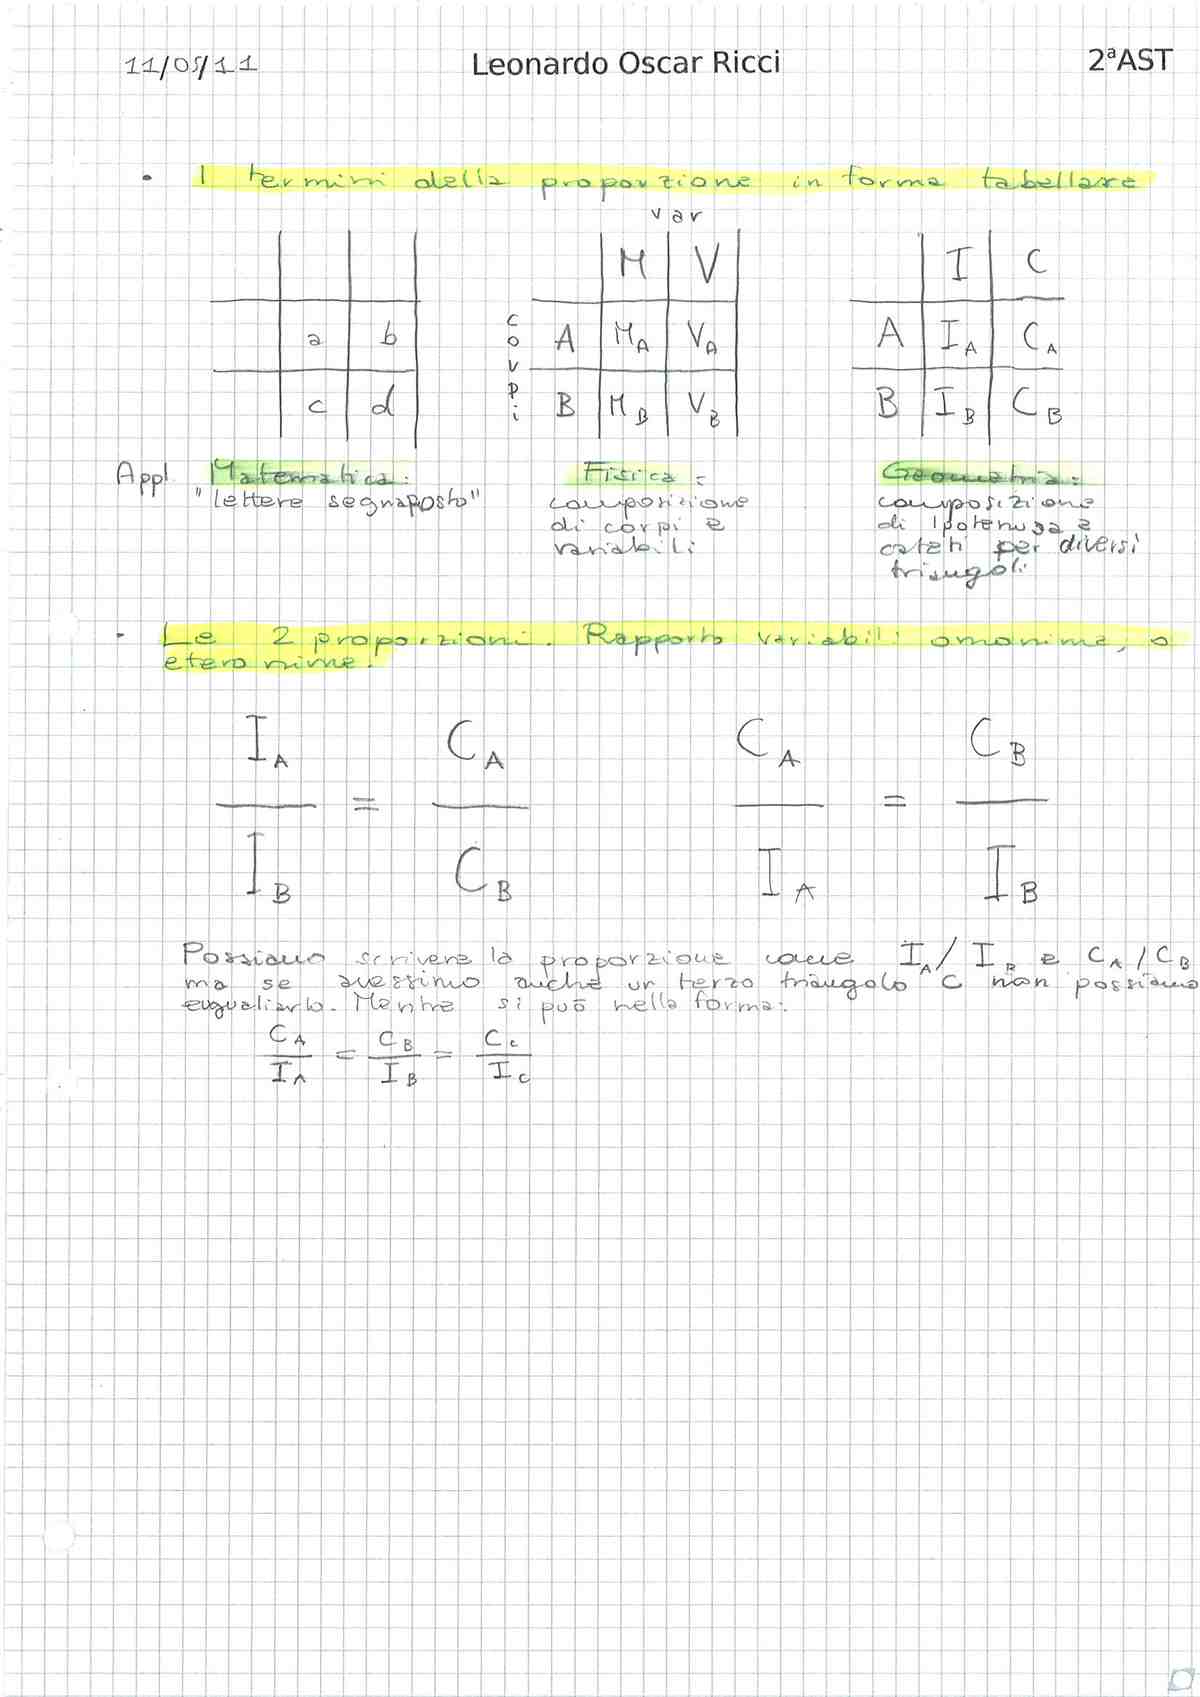 11/05/11 Leonardo Oscar Ricci 2ªAST
• I termini della proporzione in forma tabellare
var
M V I C
a b corpi A M_A V_A A I_A C_A
c d B M_B V_B B I_B C_B
Appl. Matematica: Fisica: Geometria:
"lettere segnaposto" composizione composizione
di corpi e di Ipotenusa e
variabili cateti per diversi
triangoli
• Le 2 proporzioni. Rapporto variabili omonime, o
eteronime.
I_A / I_B = C_A / C_B C_A / I_A = C_B / I_B
Possiamo scrivere la proporzione come I_A/I_B e C_A/C_B
ma se avessimo anche un terzo triangolo C non possiamo
eugualiarlo. Mentre si può nella forma:
C_A / I_A = C_B / I_B = C_C / I_C